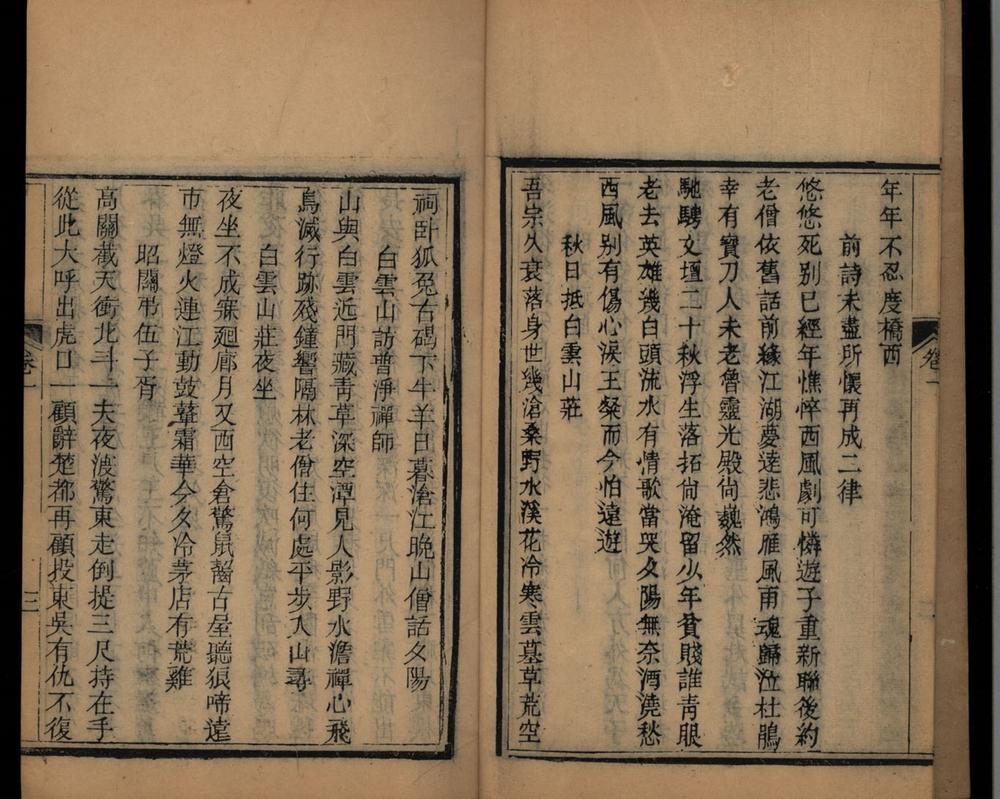 年年不忍度橋西
前詩未盡所懷再成二律
悠悠死別已經年憔悴西風劇可憐遊子重新聯後約
老僧依舊話前緣江湖夢逹悲鴻雁風雨魂歸泣杜鵑
幸有寶刀人未老魯靈光殿尙巍然
馳騁文壇二十秋浮生落拓尙淹留少年貧賤誰靑眼
老去英雄幾白頭流水有情歌當哭夕陽無奈酒澆愁
西風別有傷心淚王粲而今怕遠遊
秋日抵白雲山莊
吾宗久衰落身世幾滄桑野水溪花冷寒雲墓草荒空
卷一
祠卧狐兔古碣下牛羊日暮滄江晚山僧話夕陽
白雲山訪普淨禪師
山與白雲近門藏靑草深空潭見人影野水澹禪心飛
鳥滅行跡殘鐘響隔林老僧住何處平步入山尋
白雲山莊夜坐
夜坐不成寐廻廊月又西空倉驚鼠齧古屋聽狼啼遠
市無燈火連江動鼓鼙霜華今夕冷茅店有荒雞
昭關弔伍子胥
高關截天衝北斗一夫夜渡驚東走倒提三尺持在手
從此大呼出虎口一顧辭楚都再顧投東吳有仇不復
卷一
三